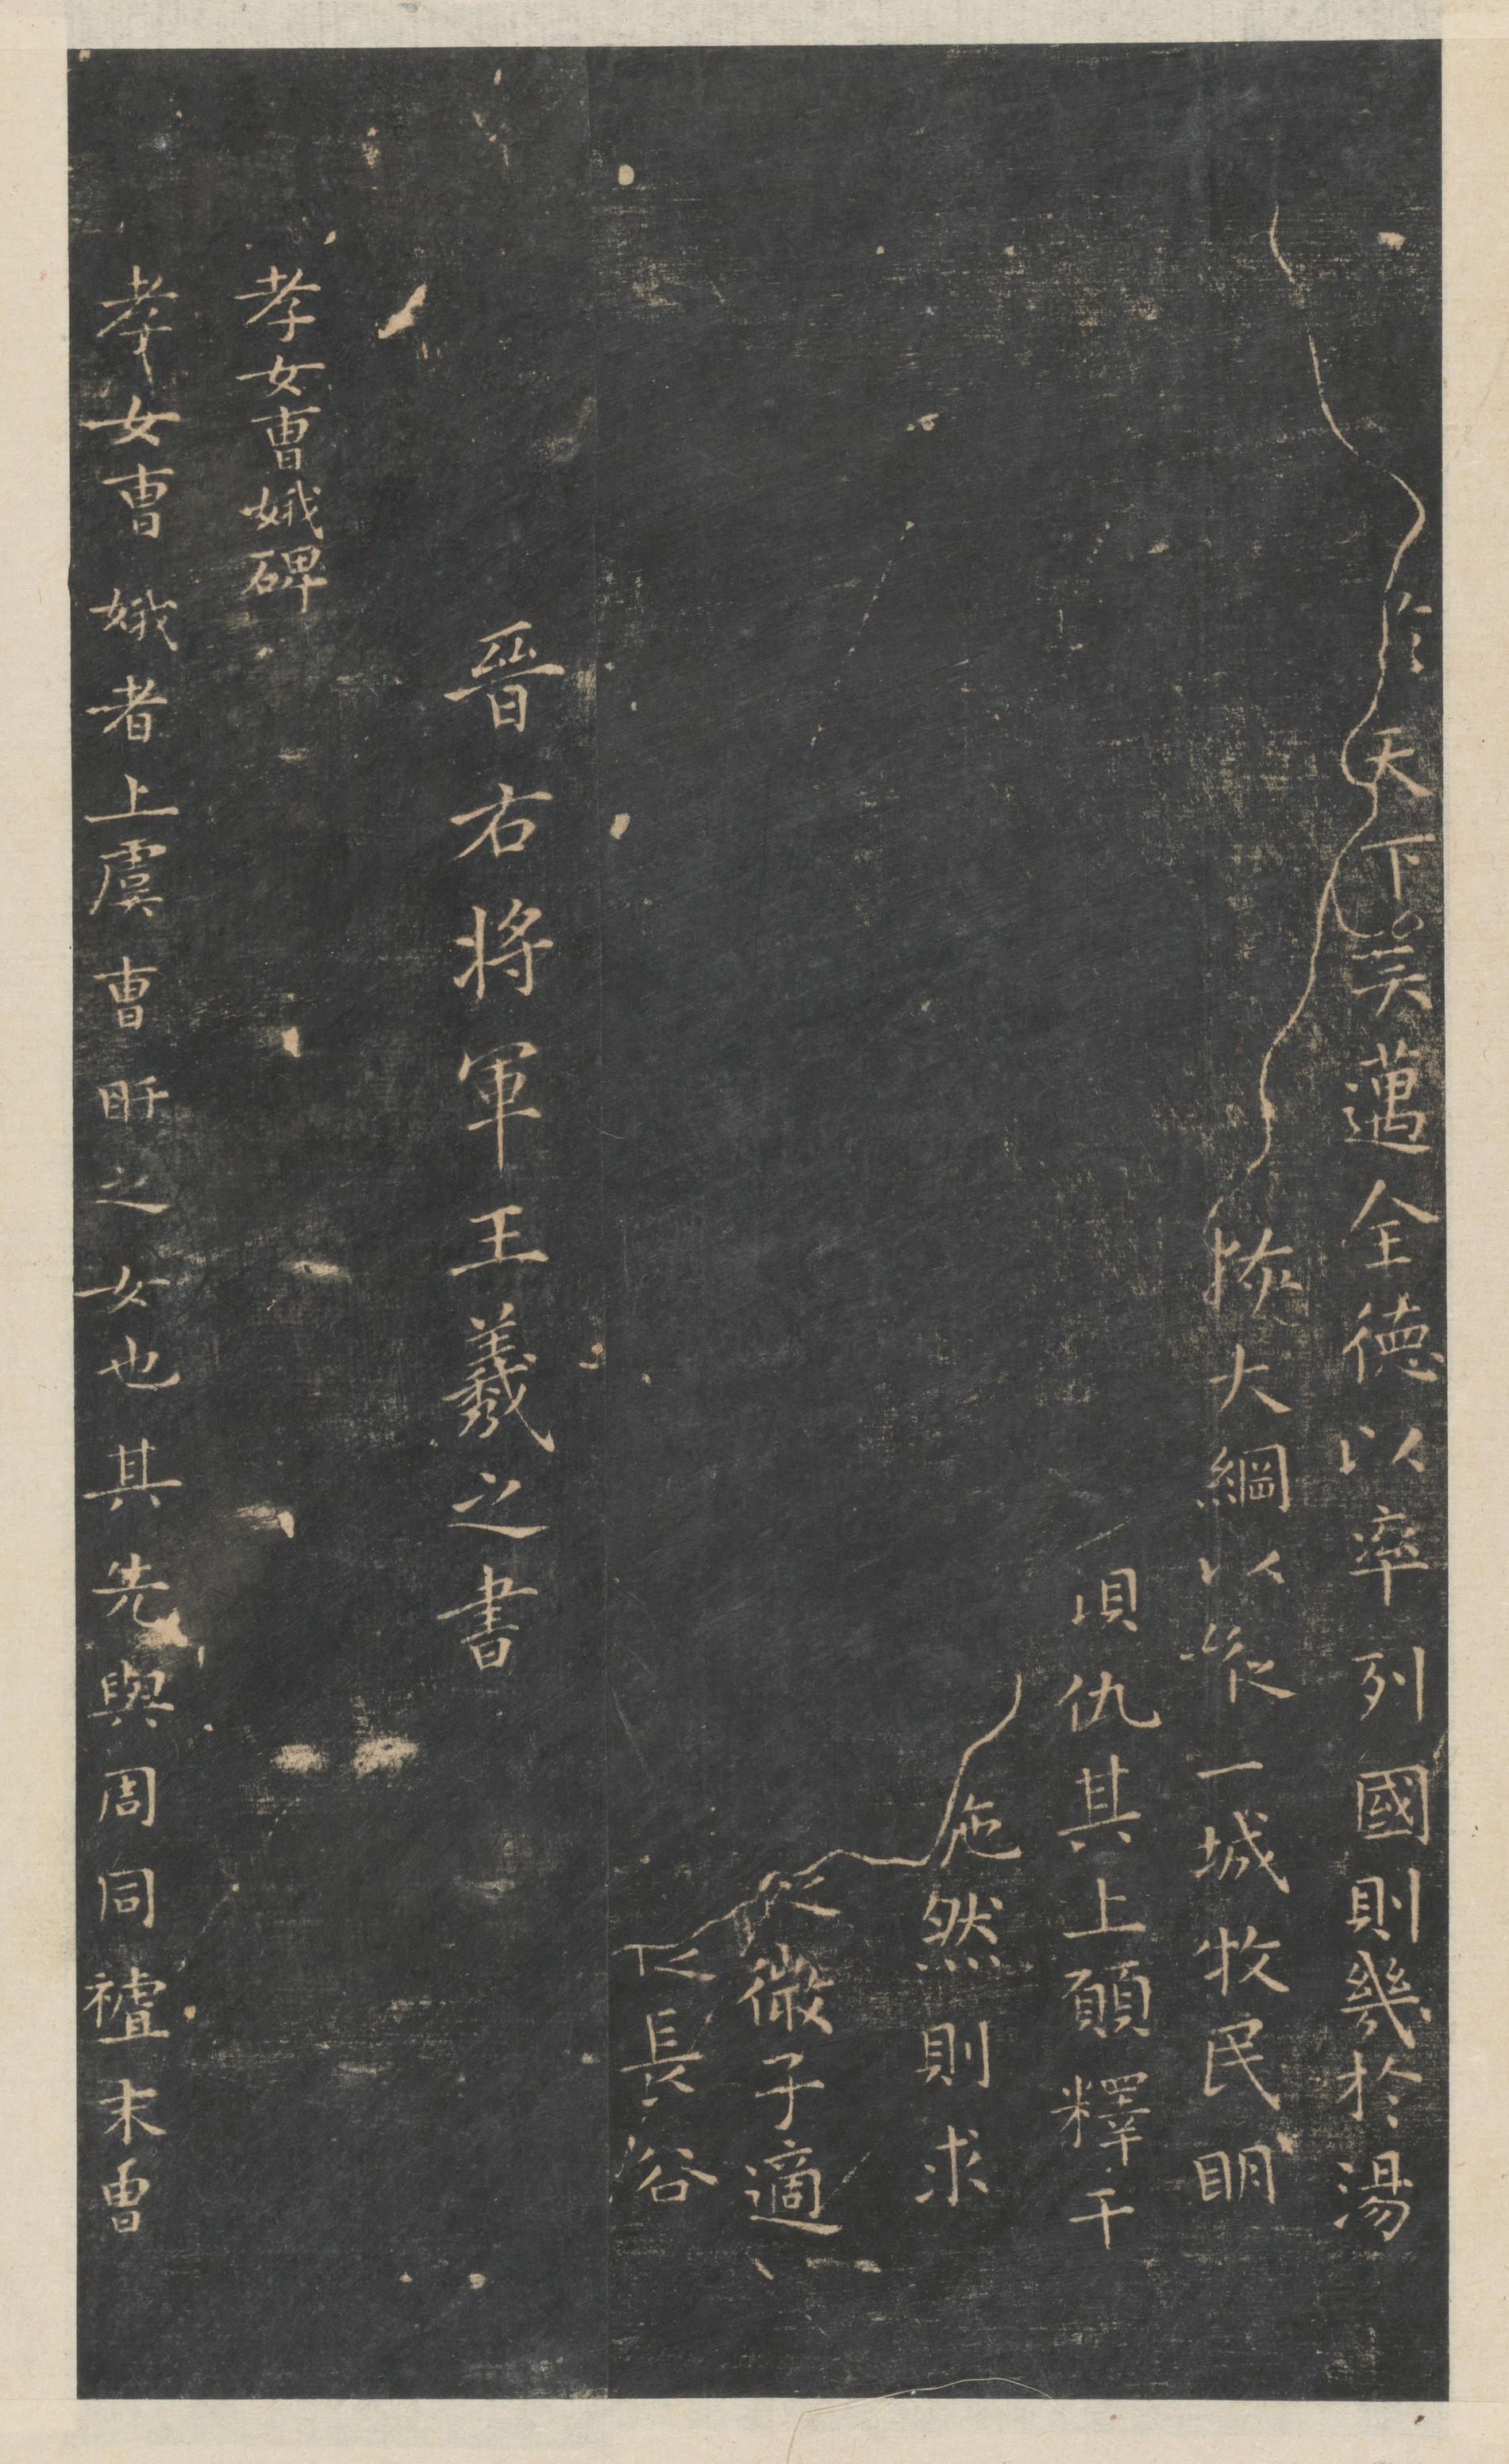 天下矣邁全德以率列國則幾於湯
大綱以縱一城牧民明
其仇其上願釋干
施然則求
微子適
長谷
晉右將軍王羲之書
孝女曹娥碑
孝女曹娥者上虞曹盱之女也其先與周同禮末冑